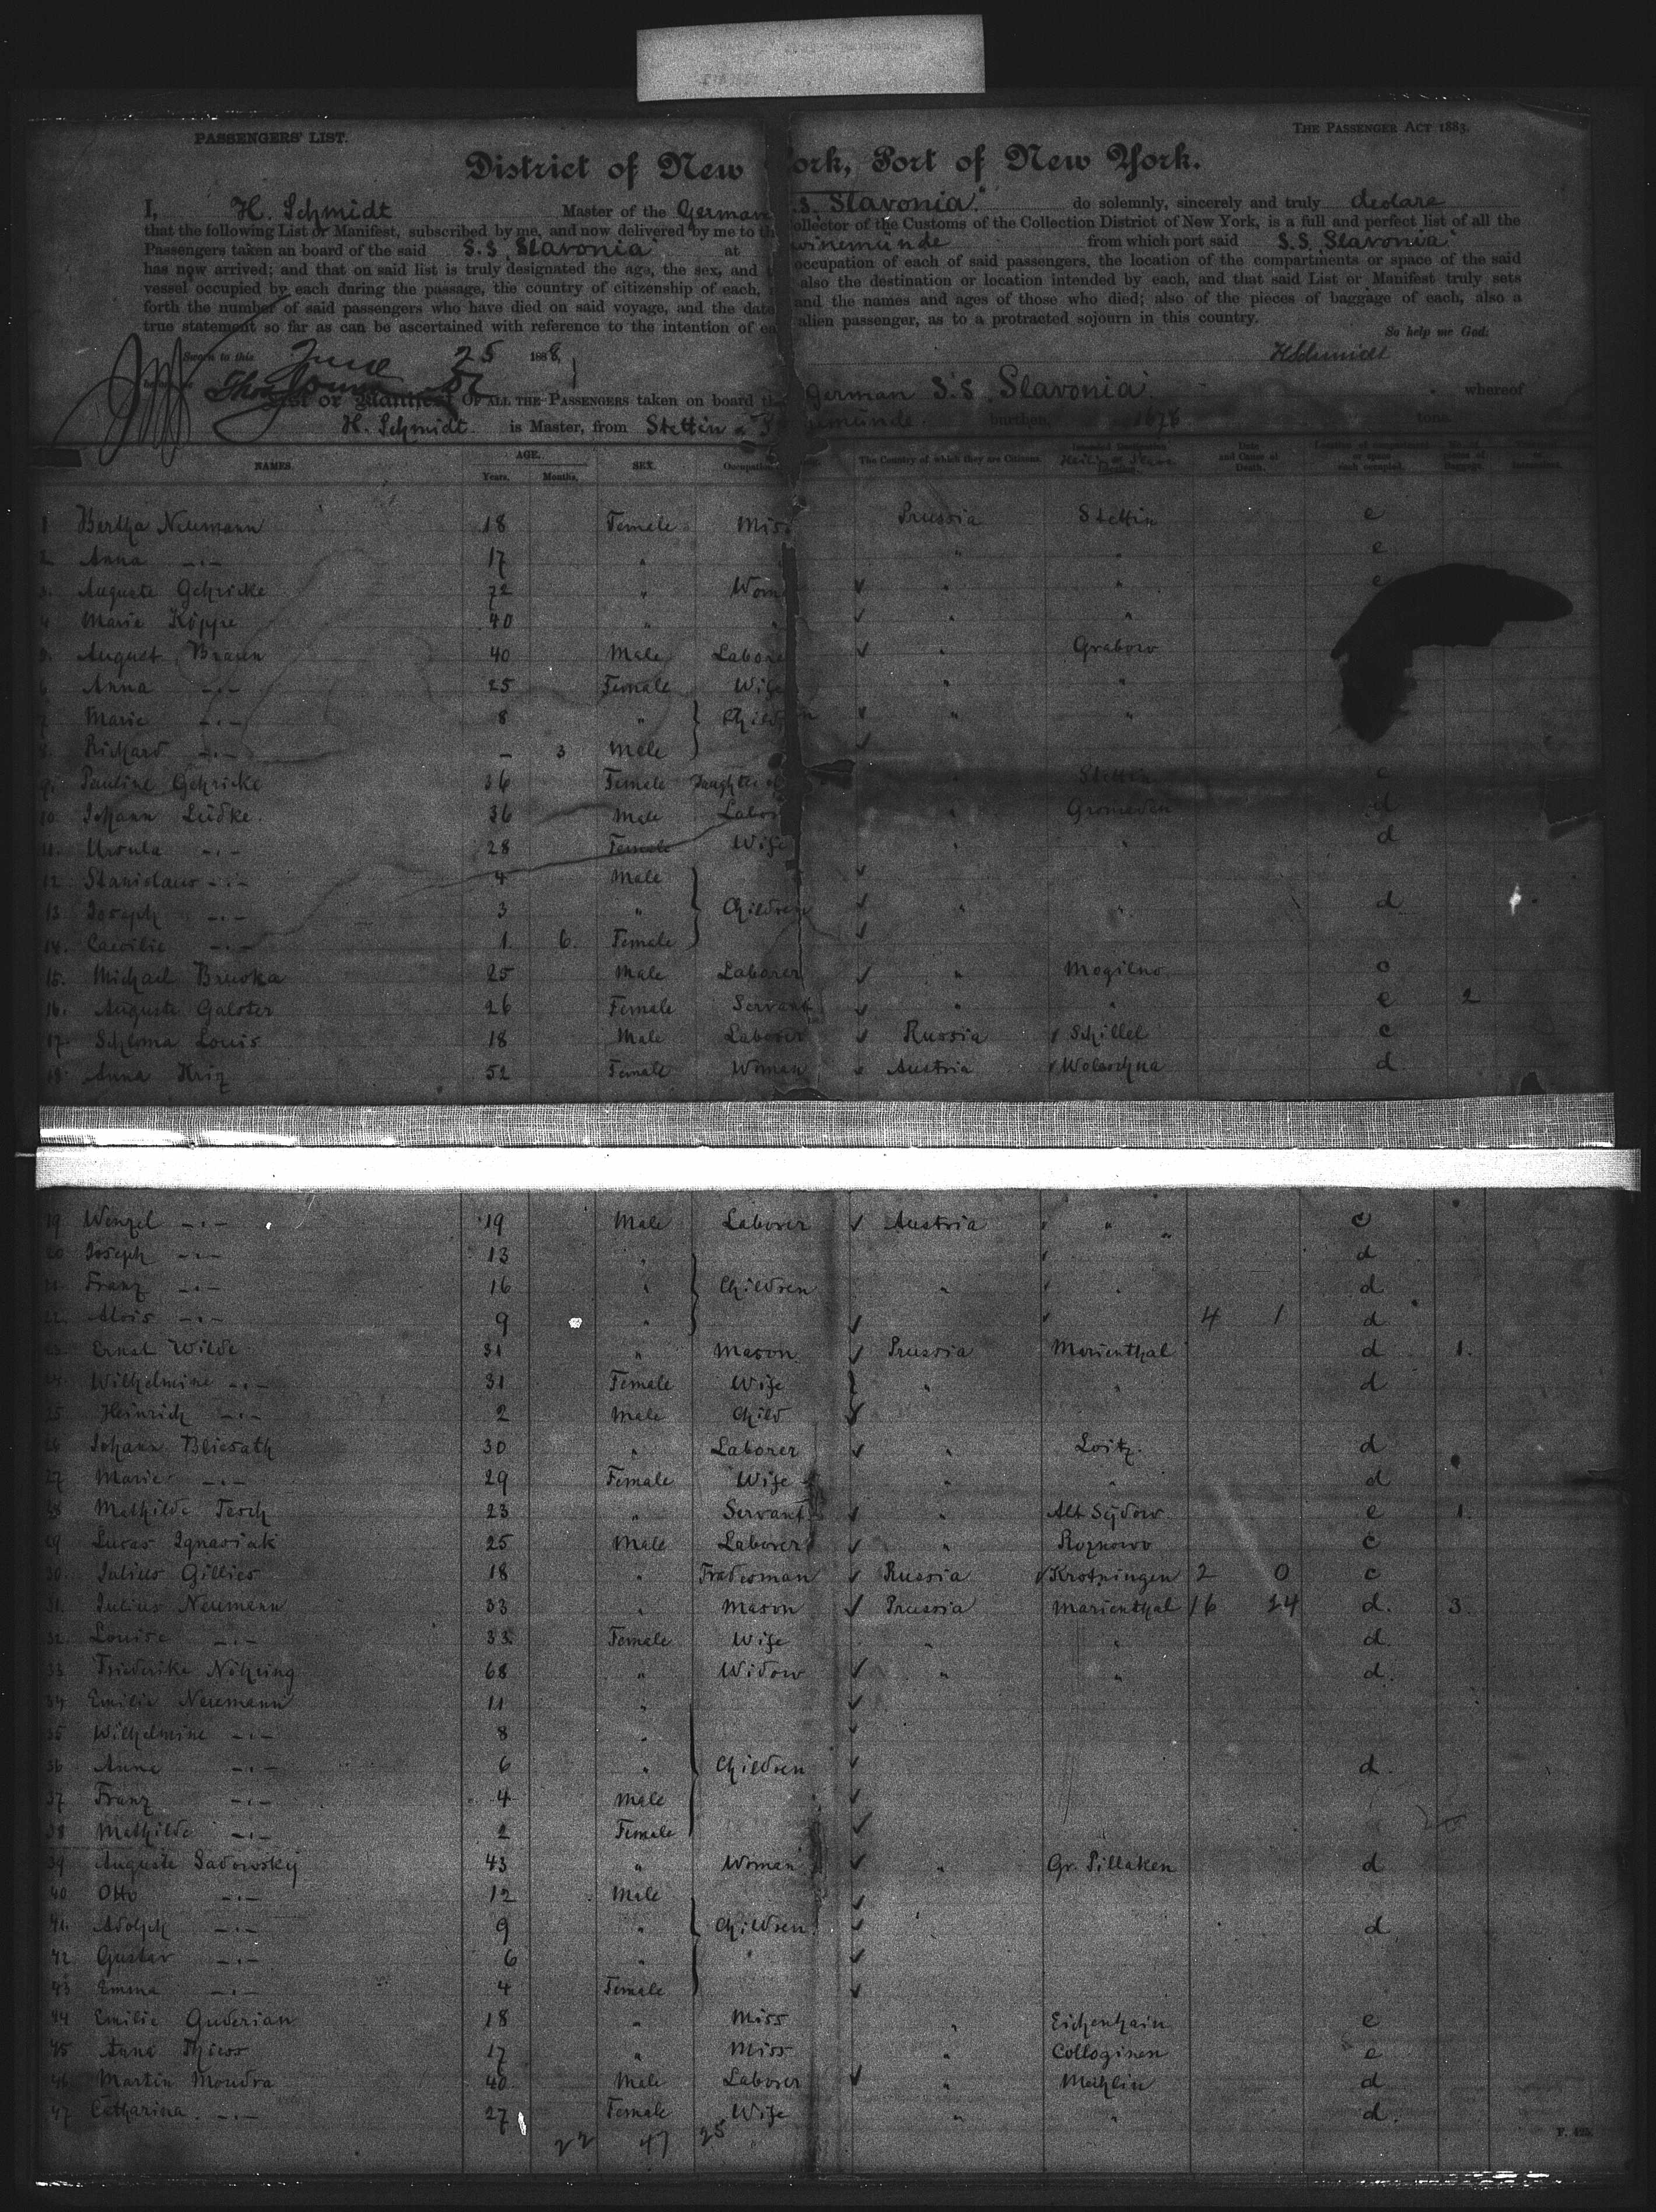 PASSENGERS' LIST.
THE PASSENGER ACT 1883.
District of New York, Port of New York.
I, H. Schmidt Master of the German S.S. Slavonia" do solemnly, sincerely and truly declare
that the following List or Manifest, subscribed by me, and now delivered by me to th ollector of the Customs of the Collection District of New York, is a full and perfect list of all the
Passengers taken an board of the said S.S. Slavonia at winemünde from which port said S.S. Slavonia"
has now arrived; and that on said list is truly designated the age, the sex, and occupation of each of said passengers, the location of the compartments or space of the said
vessel occupied by each during the passage, the country of citizenship of each, also the destination or location intended by each, and that said List or Manifest truly sets
forth the number of said passengers who have died on said voyage, and the date and the names and ages of those who died; also of the pieces of baggage of each, also a
true statement so far as can be ascertained with reference to the intention of ea alien passenger, as to a protracted sojourn in this country.
So help me God:
Sworn to this June 25 1888, HSchmidt
List or Manifest OF ALL THE PASSENGERS taken on board th German S.S. Slavonia" whereof
H. Schmidt is Master, from Stettin münde burthen, 1676 tons.
NAMES. AGE. Years. Months. SEX. Occupation. The Country of which they are Citizens. Date and Cause of Death. Location of compartment or space each occupied.
1 Bertha Neumann 18 Female Miss Prussia Stettin e
2 Anna -"- 17 " " " e
3. Auguste Gehricke 72 " Wom " " e
4 Marie Köppe 40 " " " "
5. August Braun 40 Male Labore " Grabow
6 Anna -"- 25 Female Wife " "
7 Marie -"- 8 " Children " "
8. Richard -"- - 3 Male
9. Pauline Gehricke 36 Female Daughter of " Stettin e
10. Johann Lüdke 36 Male Labor " Gromaden d
11. Ursula -"- 28 Female Wife " " d
12. Stanislaus -"- 4 Male
13. Joseph -"- 3 " Children " " d
14. Caecilie -"- 1. 6. Female
15. Michael Bruska 25 Male Laborer " Mogilno c
16. Auguste Galster 26 Female Servant " " e 2
17. Schloma Louis 18 Male Laborer Russia Schillel c
18. Anna Kriz 52 Female Woman Austria Woleschna d
19 Wenzel -"- 19 Male Laborer Austria " c
20 Joseph -"- 13 " d
21. Franz -"- 16 " Children " " d
22. Alois -"- 9 " 4 1 d
23. Ernst Wilde 31 " Mason Prussia Marienthal d 1.
24. Wilhelmine -"- 31 Female Wife " " d
25 Heinrich -"- 2 Male Child
26 Johann Bliesath 30 " Laborer " Loitz. d
27 Marie -"- 29 Female Wife " " d
28 Mathilde Tesch 23 " Servant " Alt Sydow e 1.
29 Lucas Ignasiak 25 Male Laborer " Roznowo c
30. Julius Gillies 18 " Tradesman Russia Krotzingen 2 0 c
31. Julius Neumann 33 " Mason Prussia Marienthal 16 24 d. 3
32. Louise -"- 33. Female Wife " " d.
33. Friederike Nöhring 68 " Widow " " d.
34 Emilie Neumann 11 "
35 Wilhelmine -"- 8 "
36 Anna -"- 6 " Children d.
37 Franz -"- 4 Male
38 Mathilde -"- 2 Female
39 Auguste Sadowsky 43 " Woman " Gr. Pillaken d
40 Otto -"- 12 Male
41. Adolph -"- 9 " Children d
42 Gustav -"- 6 "
43 Emma -"- 4 Female
44 Emilie Guderian 18 " Miss " Eichenhain e
45 Anna Thiess 17 " Miss " Colloginen e
46 Martin Moudra 40. Male Laborer " Mechlin d
47 Catharina -"- 27 Female Wife " " d.
22 47 25